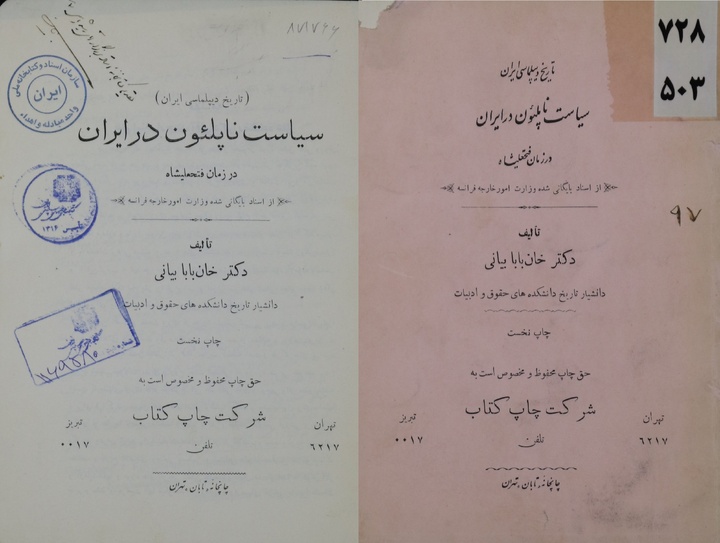 ۸۷۱۷۶۶
سازمان اسناد و کتابخانه ملی
ایران
واحد مبادله و اهداء
(تاریخ دیپلماسی ایران)
سیاست ناپلئون در ایران
در زمان فتحعلیشاه
از اسناد بایگانی شده وزارت امور خارجه فرانسه
تألیف
دکتر خان بابا بیانی
دانشیار تاریخ دانشکده های حقوق و ادبیات
چاپ نخست
حق چاپ محفوظ و مخصوص است به
شرکت چاپ کتاب
تهران
تبریز
۶۲۱۷
تلفن
۰۰۱۷
چاپخانه تابان، تهران
۷۲۸
۵۰۳
تاریخ دیپلماسی ایران
سیاست ناپلئون در ایران
در زمان فتحعلیشاه
از اسناد بایگانی شده وزارت امور خارجه فرانسه
۹۷
تألیف
دکتر خان بابا بیانی
دانشیار تاریخ دانشکده های حقوق و ادبیات
چاپ نخست
حق چاپ محفوظ و مخصوص است به
شرکت چاپ کتاب
تهران
تبریز
۶۲۱۷
تلفن
۰۰۱۷
چاپخانه تابان، تهران